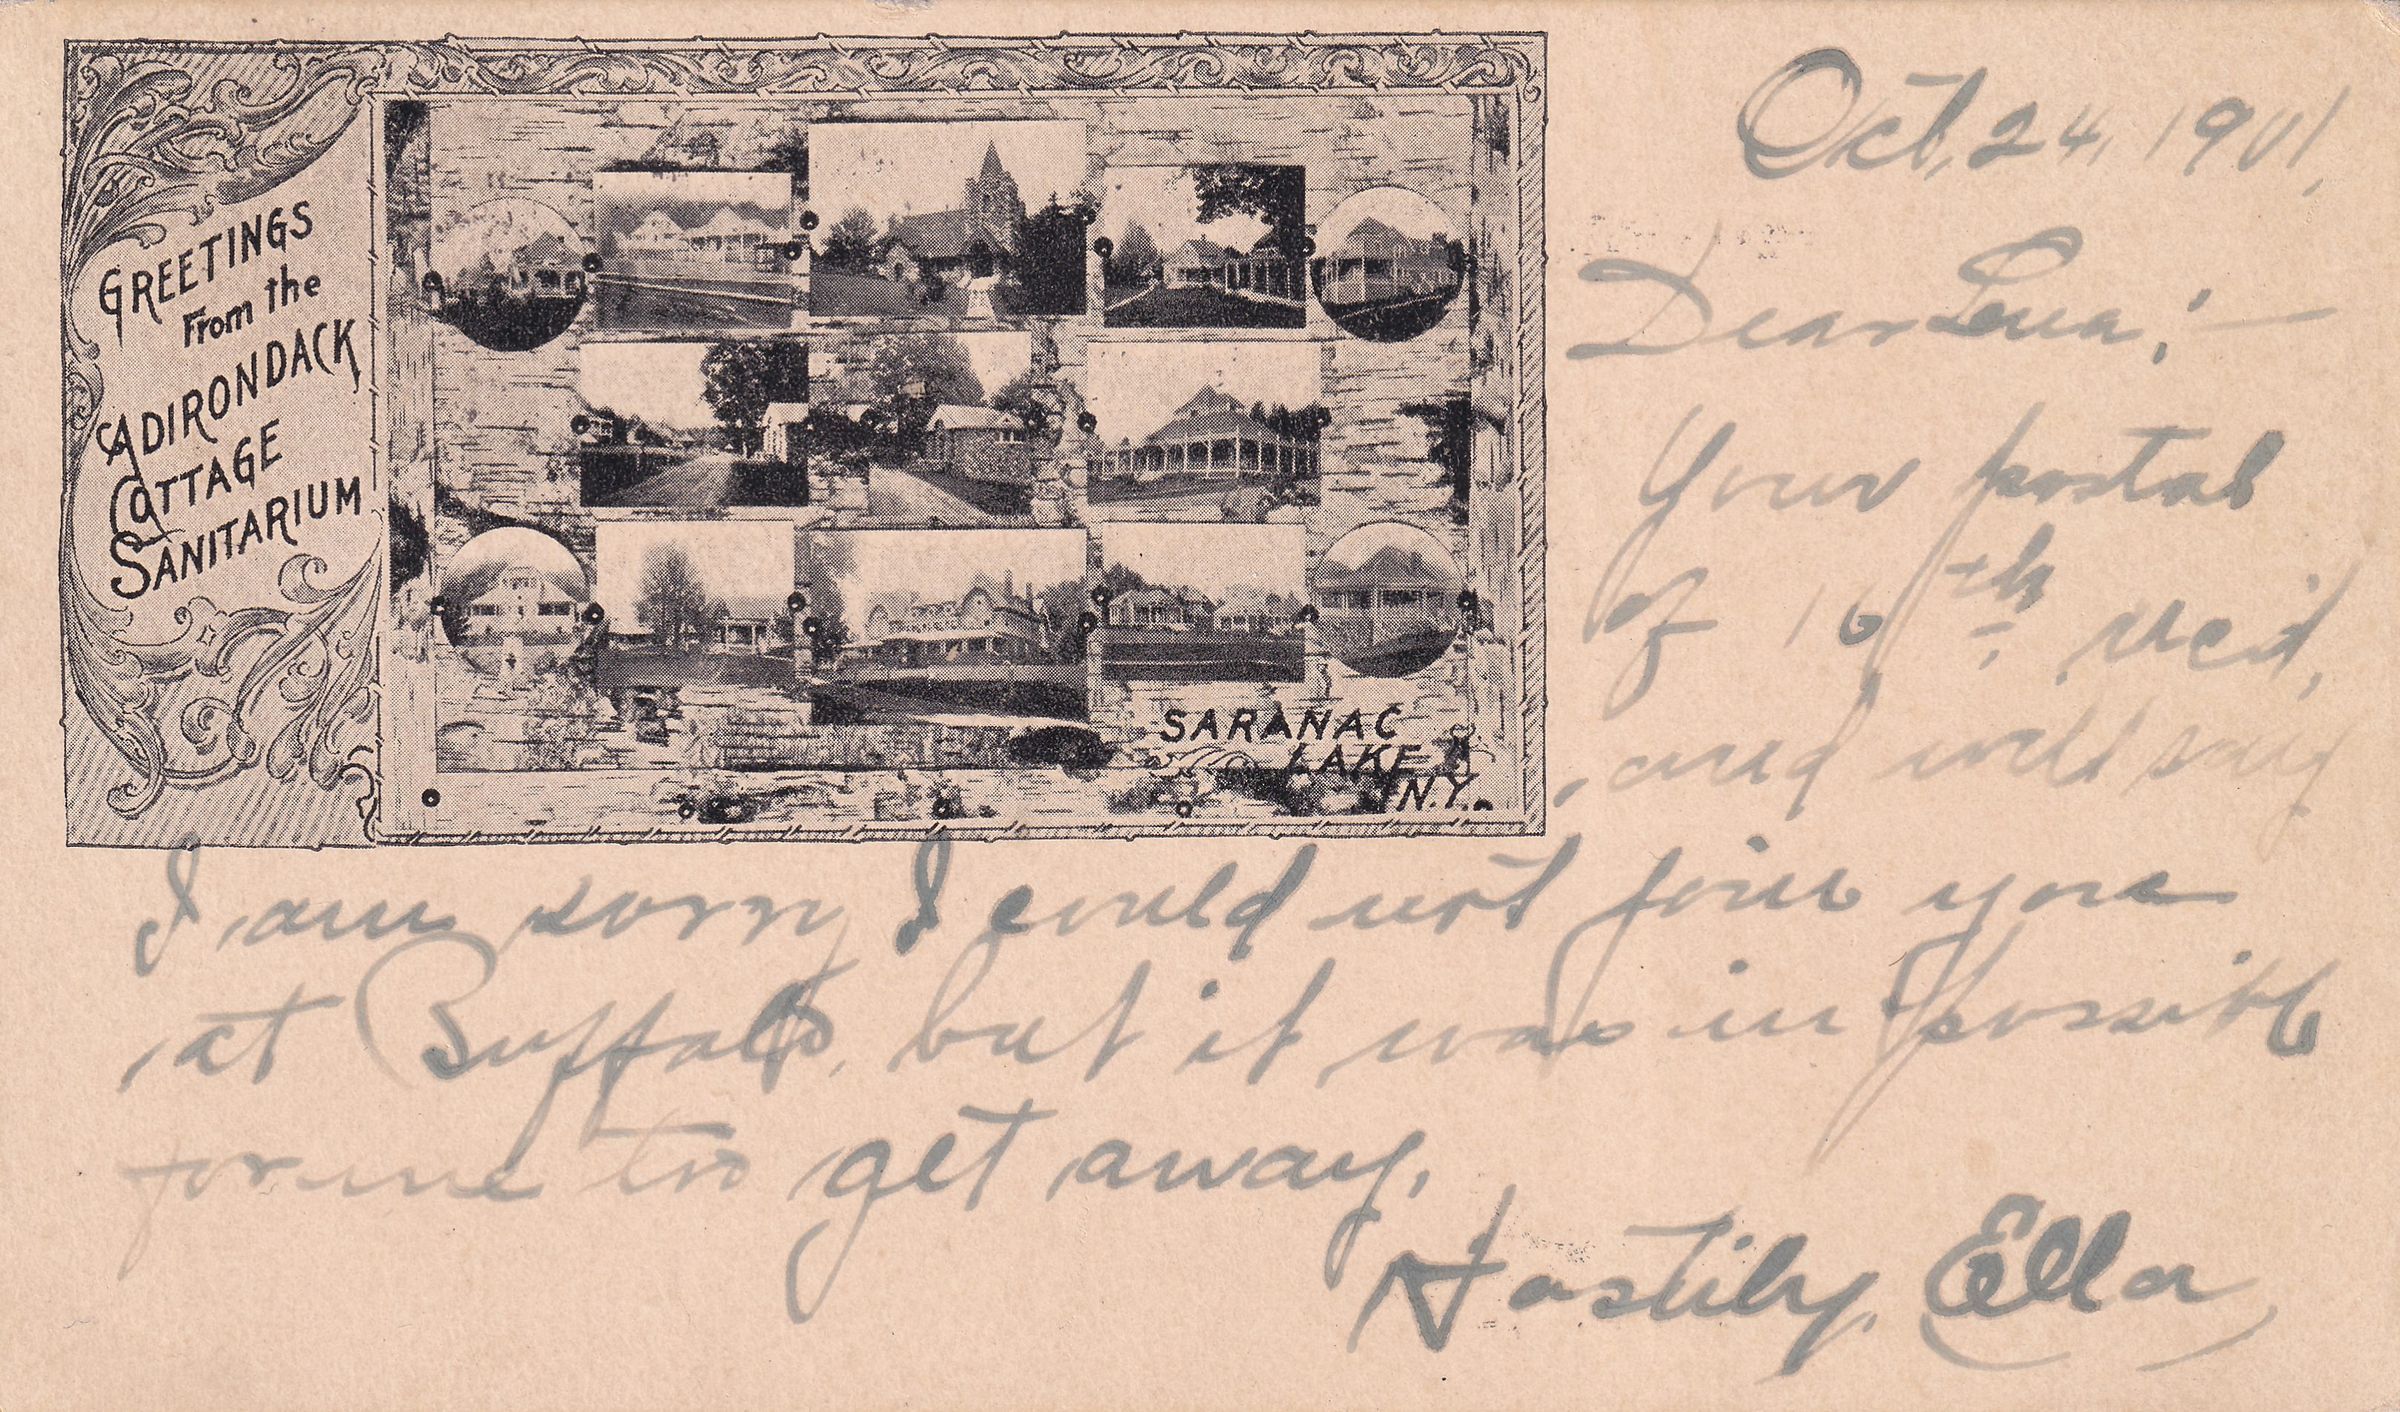 GREETINGS
From the
ADIRONDACK
COTTAGE
SANITARIUM
SARANAC
LAKE
N.Y.
Oct. 24, 1901,
Dear :—
Your postal
of 16th rec'd,
and will say
I am sorry I could not join you
at Buffalo, but it was impossible
for me to get away.
Hastily, Ella